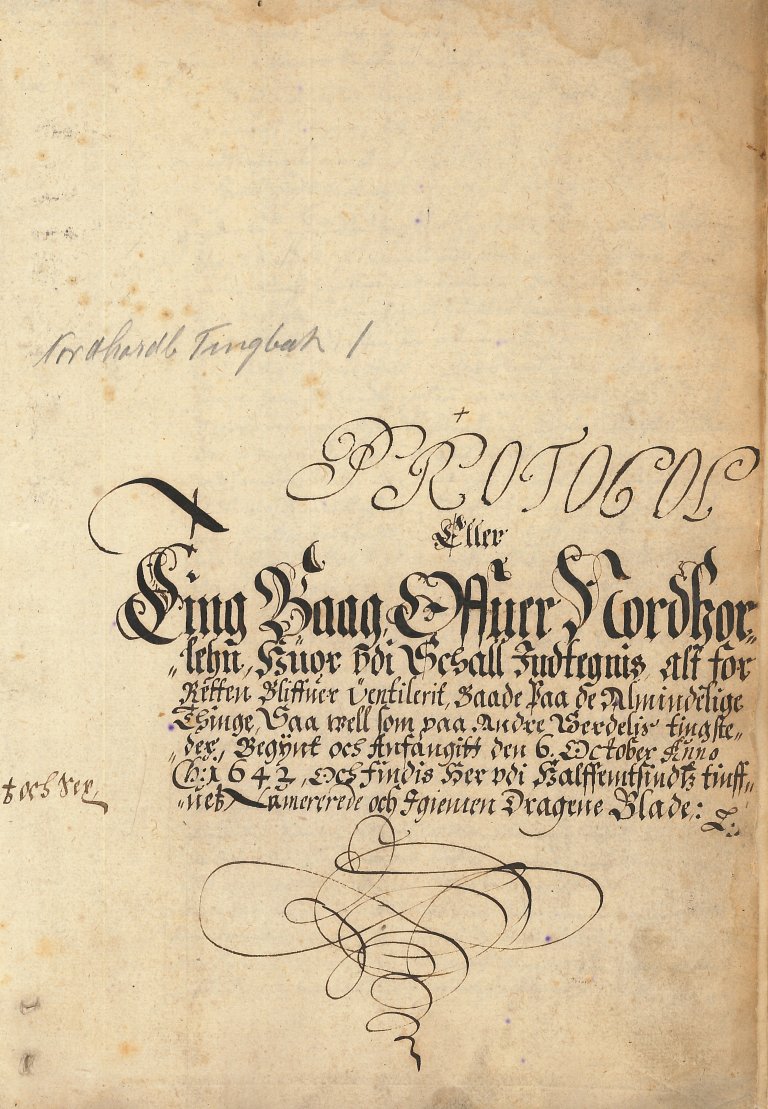 Nordhordl Tingbok 1
PROTOCOL
Eller
Ting Baag, Offuer Nordhor„
„lehn, Huor vdi Schall Indtegnis, alt for
Retten Bliffuer Ventilerit, Baade paa de Almindelige
Thinge, Saa well som paa Andre Werdelis tingste„
„der, Begÿnt och Anfangitt den 6. October Anno
Ch: 1642, Och findis Her vdi Halffemtsindtz tiuff„
och Sex
„uetz Numererede och Igiemen Dragene Blade: